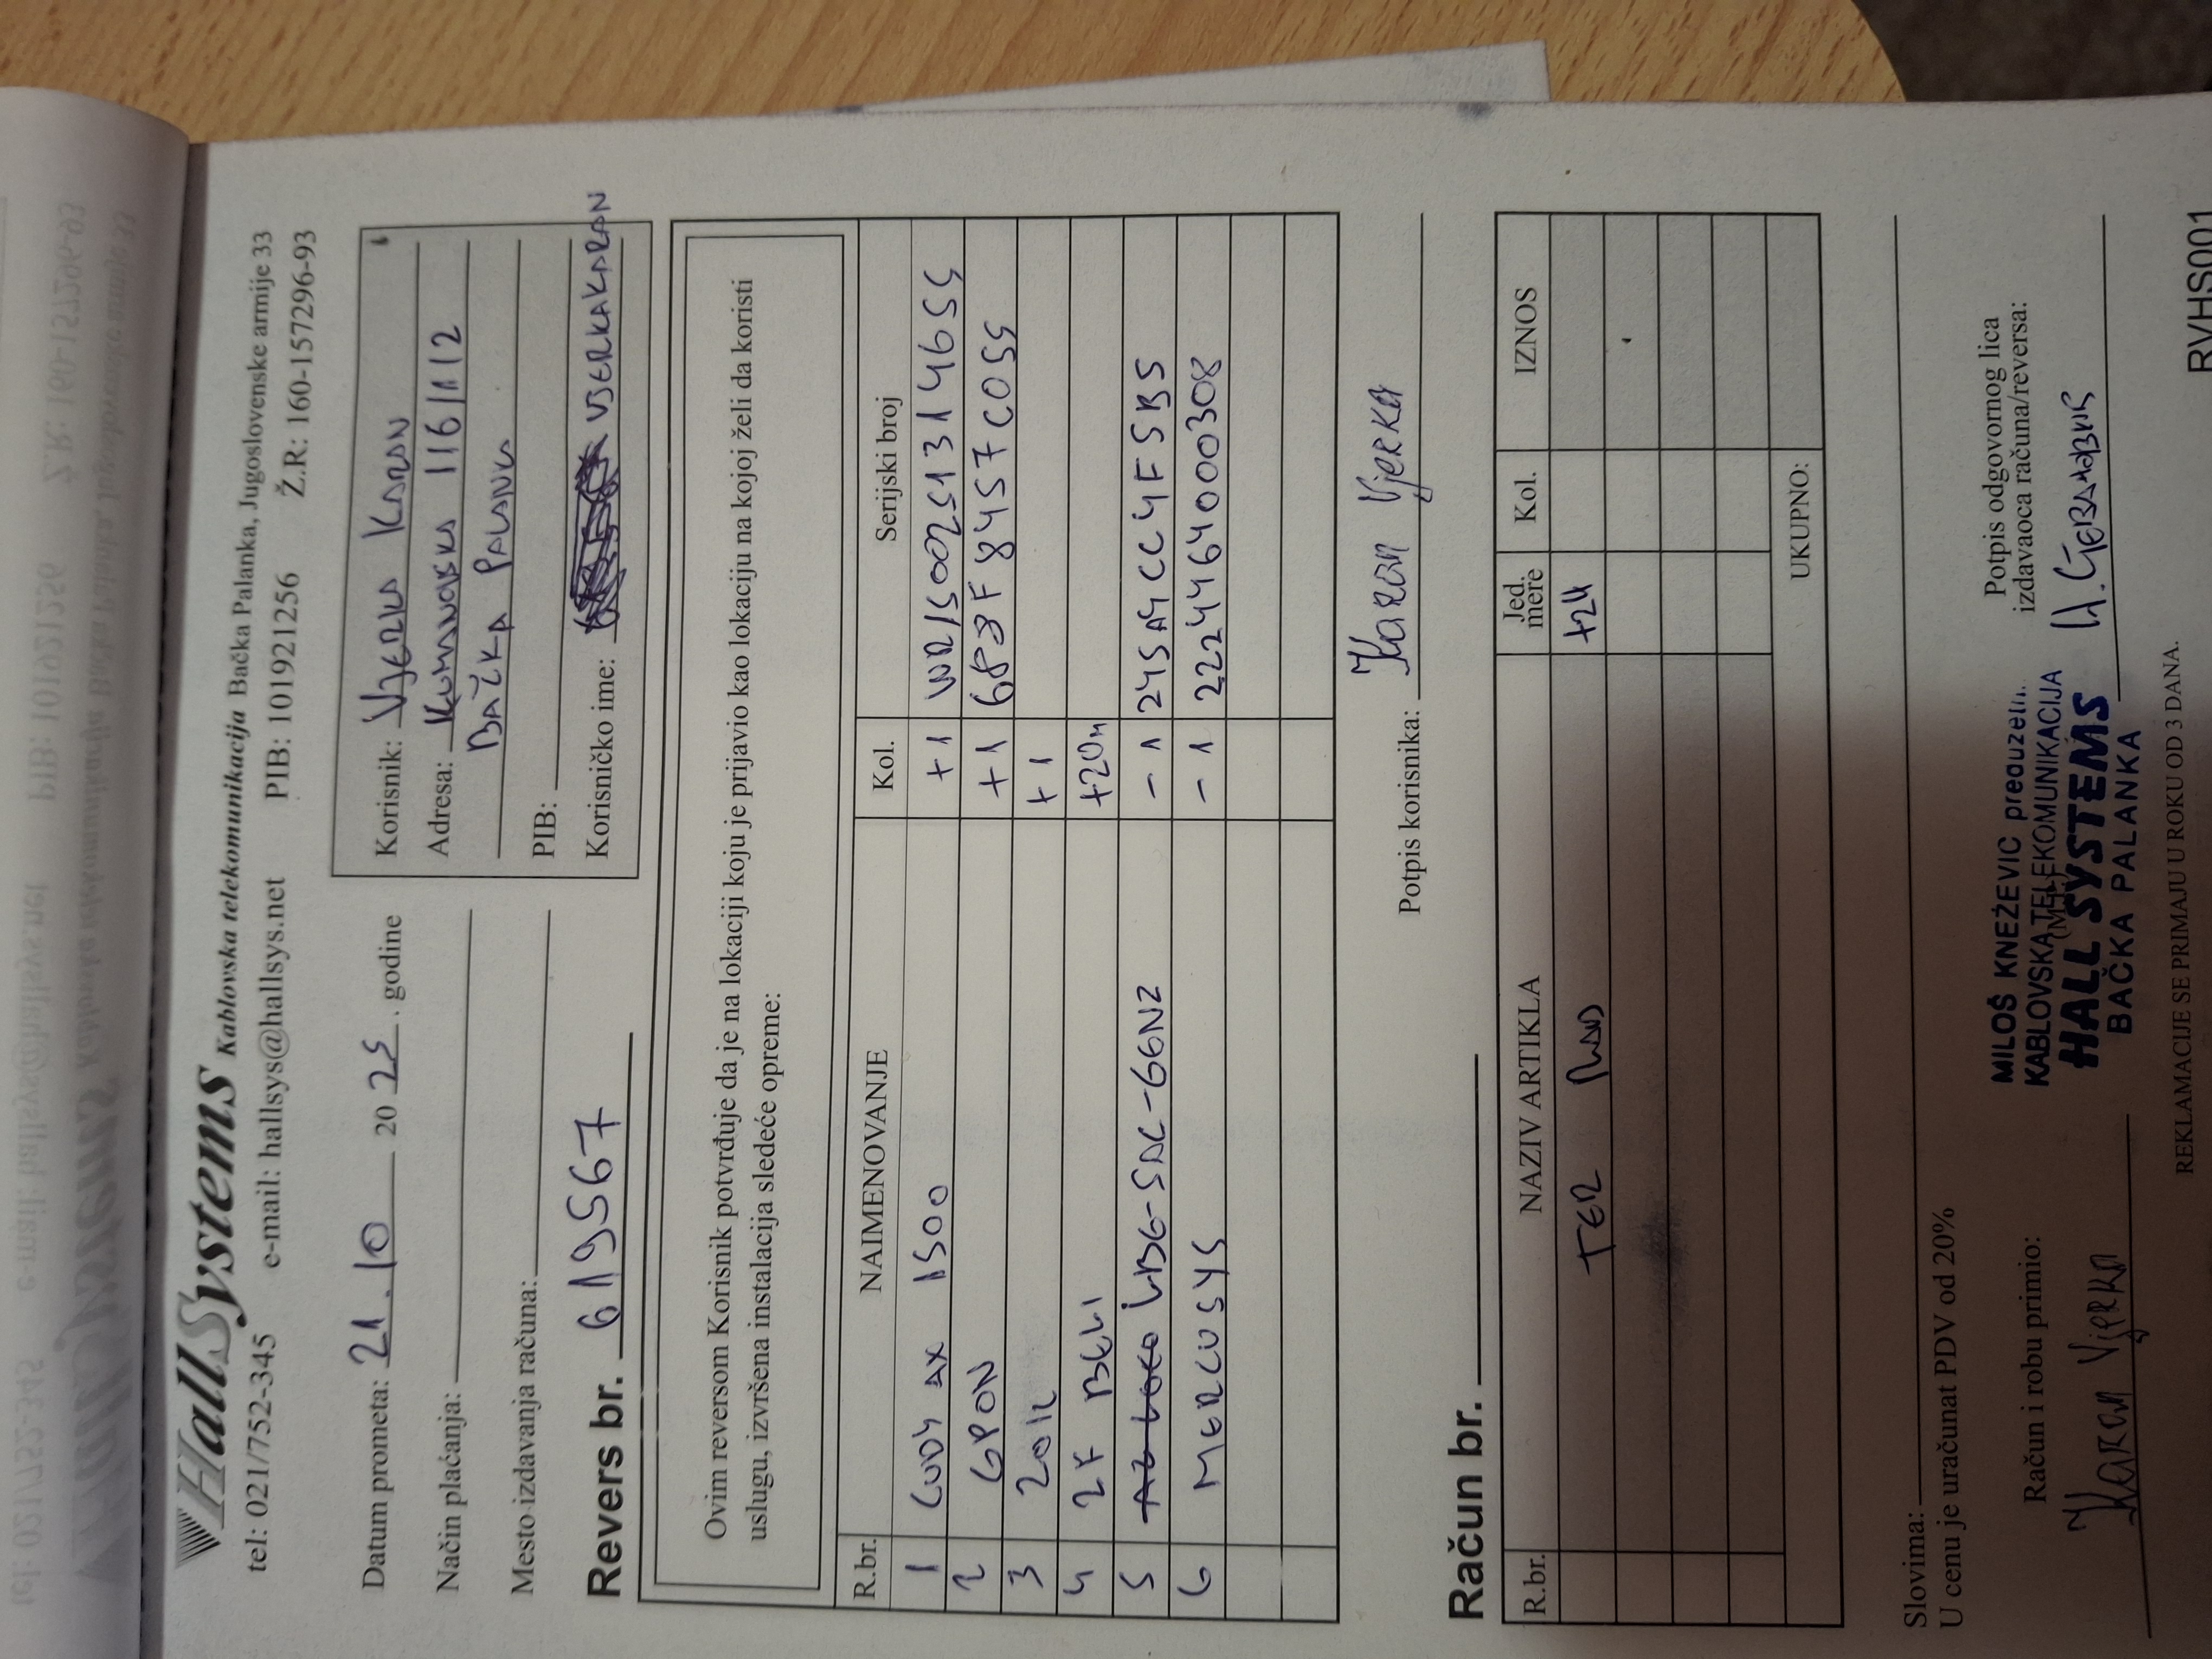 HallSystems Kablovska telekomunikacija Bačka Palanka, Jugoslovenske armije 33
tel: 021/752-345 e-mail: hallsys@hallsys.net PIB: 101921256 Ž.R.: 160-157296-93
Datum prometa: 21.10 20 25. godine
Način plaćanja:
Mesto izdavanja računa:
Revers br. 619567
Korisnik: VJERKA KARAN
Adresa: KUMANOVSKA 116/1/12
BAČKA PALANKA
PIB:
Korisničko ime: VJERKAKARAN
Ovim reversom Korisnik potvrđuje da je na lokaciji koju je prijavio kao lokaciju na kojoj želi da koristi
uslugu, izvršena instalacija sledeće opreme:
R.br. NAIMENOVANJE Kol. Serijski broj
1 CUDY AX 1500 +1 WR1500251314655
2 GPON +1 683F8457C055
3 ZOK +1
4 2F BELI +20m
5 LBE-5AC-GEN2 -1 245A4CC4F5B5
6 MERCUSYS -1 2224464000308
Potpis korisnika: Karan Vjerka
Račun br.
R.br. NAZIV ARTIKLA Jed. mere Kol. IZNOS
TER RAD +2H
UKUPNO:
Slovima:
U cenu je uračunat PDV od 20%
Račun i robu primio:
Karan Vjerka
MILOŠ KNEŽEVIĆ preduzetn.
KABLOVSKA TELEKOMUNIKACIJA
(M.P.)
HALL SYSTEMS
BAČKA PALANKA
Potpis odgovornog lica
izdavaoca računa/reversa:
REKLAMACIJE SE PRIMAJU U ROKU OD 3 DANA.
RVHS001